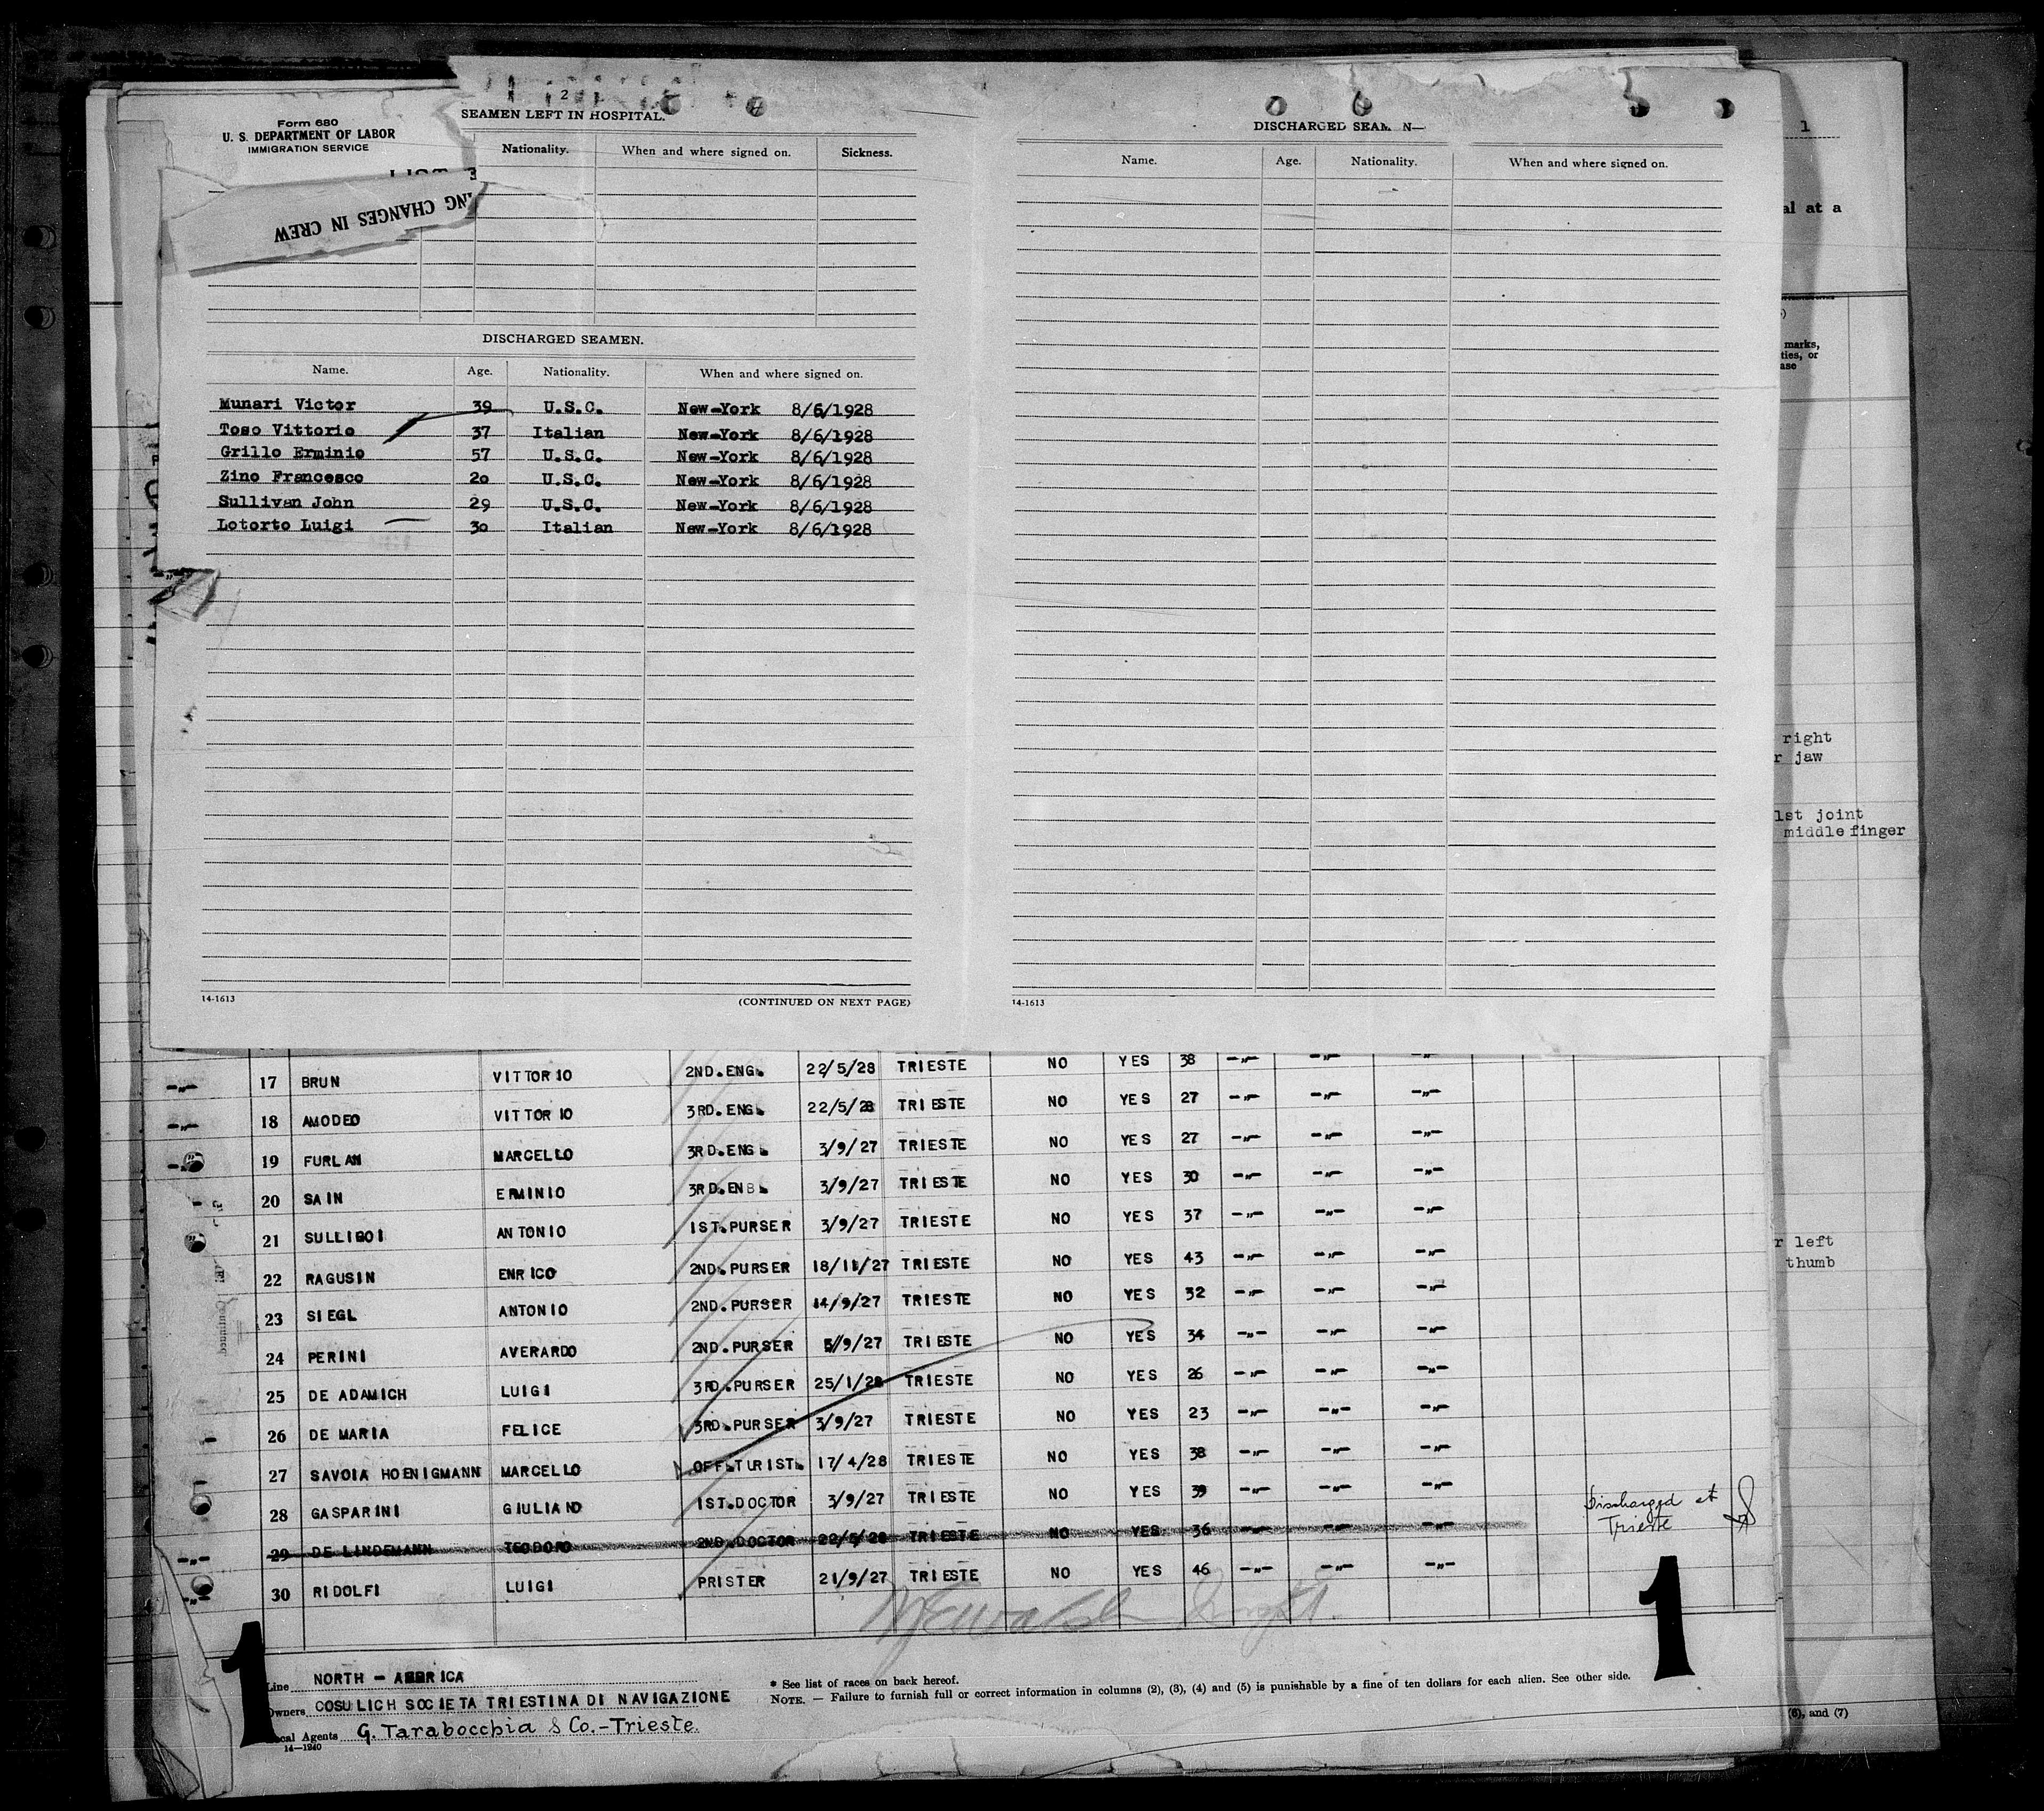 2
Form 680
U. S. DEPARTMENT OF LABOR
IMMIGRATION SERVICE
NG CHANGES IN CREW
SEAMEN LEFT IN HOSPITAL.
Nationality. When and where signed on. Sickness.
DISCHARGED SEAMEN.
Name. Age. Nationality. When and where signed on.
Munari Victor 39 U.S.C. New-York 8/6/1928
Toso Vittorio 37 Italian New-York 8/6/1928
Grillo Erminio 57 U.S.C. New-York 8/6/1928
Zino Francesco 20 U.S.C. New-York 8/6/1928
Sullivan John 29 U.S.C. New-York 8/6/1928
Lotorto Luigi 30 Italian New-York 8/6/1928
14-1613 (CONTINUED ON NEXT PAGE)
DISCHARGED SEAM N—
Name. Age. Nationality. When and where signed on.
14-1613
1
al at a
marks,
ties, or
ase
right
r jaw
1st joint
middle finger
r left
thumb
(6), and (7)
38 -"- -"- -"-
-"- 17 BRUN VITTORIO 2ND.ENG. 22/5/28 TRIESTE NO YES
-"- 18 AMODEO VITTORIO 3RD.ENG. 22/5/28 TRIESTE NO YES 27 -"- -"- -"-
-"- 19 FURLAN MARCELLO 3RD.ENG. 3/9/27 TRIESTE NO YES 27 -"- -"- -"-
20 SAIN ERMINIO 3RD.ENG. 3/9/27 TRIESTE NO YES 30 -"- -"- -"-
21 SULLIGOI ANTONIO 1ST.PURSER 3/9/27 TRIESTE NO YES 37 -"- -"- -"-
22 RAGUSIN ENRICO 2ND.PURSER 18/11/27 TRIESTE NO YES 43 -"- -"- -"-
23 SIEGL ANTONIO 2ND.PURSER 14/9/27 TRIESTE NO YES 32 -"- -"- -"-
24 PERINI AVERARDO 2ND.PURSER 5/9/27 TRIESTE NO YES 34 -"- -"- -"-
25 DE ADAMICH LUIGI 3RD.PURSER 25/1/28 TRIESTE NO YES 26 -"- -"- -"-
26 DE MARIA FELICE 3RD.PURSER 3/9/27 TRIESTE NO YES 23 -"- -"- -"-
27 SAVOIA HOENIGMANN MARCELLO OFF.TURIST. 17/4/28 TRIESTE NO YES 38 -"- -"- -"-
28 GASPARINI GIULIANO 1ST.DOCTOR 3/9/27 TRIESTE NO YES 39 -"- -"- -"-
-"- 29 DE LINDEMANN TEODORO 2ND.DOCTOR 22/5/28 TRIESTE NO YES 36 -"- -"- -"- Discharged at Trieste
-"- 30 RIDOLFI LUIGI PRISTER 21/9/27 TRIESTE NO YES 46 -"- -"- -"-
1 1
Line NORTH - AMERICA
Owners COSULICH SOCIETA TRIESTINA DI NAVIGAZIONE
Local Agents G. Tarabocchia & Co.-Trieste.
14—1240
* See list of races on back hereof.
NOTE. — Failure to furnish full or correct information in columns (2), (3), (4) and (5) is punishable by a fine of ten dollars for each alien. See other side.